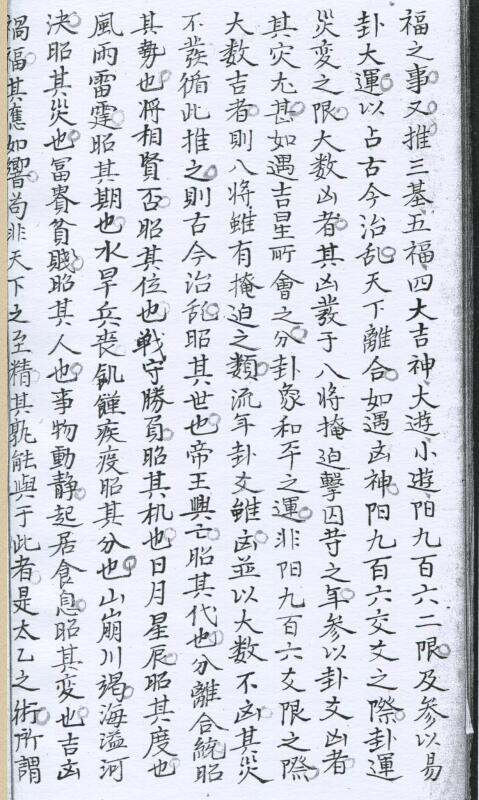 福之事又推三基五福四大吉神大遊小遊阳九百六二限及参以易
卦大運以占古今治乱天下離合如遇凶神阳九百六交爻之際卦運
災変之限大数凶者其凶發于八将掩迫擊囚等之年参以卦爻凶者
其灾尤甚如遇吉星所會之分卦象和平之運非阳九百六爻限之際
大数吉者則八将雖有掩迫之類流年卦爻雖凶並以大数不凶其災
不發循此推之則古今治乱昭其世也帝王興亡昭其代也分離合統昭
其勢也将相賢否昭其位也戦守勝負昭其机也日月星辰昭其度也
風雨雷霆昭其期也水旱兵丧飢饉疾疫昭其分也山崩川竭海溢河
决昭其災也冨貴貧賤昭其人也事物動静起居食息昭其変也吉凶
禍福其應如響苟非天下之至精其孰能與于此者是太乙之術所謂